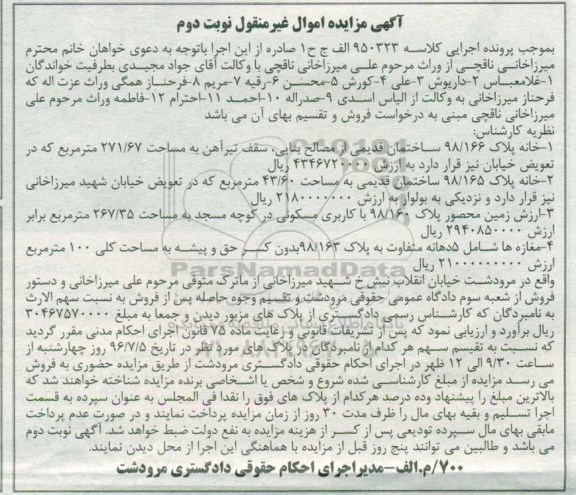 آگهی مزایده اموال غیرمنقول نوبت دوم
بموجب پرونده اجرایی کلاسه ۹۵۰۳۲۳ الف ج ح۱ صادره از این اجرا باتوجه به دعوی خواهان خانم محترم
میرزاخانی ناقچی از وراث مرحوم علی میرزاخانی ناقچی با وکالت آقای جواد مجیدی بطرفیت خواندگان
۱-غلامعباس ۲-داریوش ۳-علی ۴-کورش ۵-محسن ۶-رقیه ۷-مریم ۸-فرحناز همگی وراث عزت اله که
فرحناز میرزاخانی به وکالت از الیاس اسدی ۹-صدراله ۱۰-احمد ۱۱-احترام ۱۲-فاطمه وراث مرحوم علی
میرزاخانی ناقچی مبنی به درخواست فروش و تقسیم بهای آن می باشد
نظریه کارشناس:
۱-خانه پلاک ۹۸/۱۶۶ ساختمان قدیمی از مصالح بنایی، سقف تیرآهن به مساحت ۲۷۱/۶۷ مترمربع که در
تعویض خیابان نیز قرار دارد به ارزش ۴۳۴۶۷۲۰۰۰۰ ریال
۲-خانه پلاک ۹۸/۱۶۵ ساختمان قدیمی به مساحت ۴۳/۶۰ مترمربع که در تعویض خیابان شهید میرزاخانی
نیز قرار دارد و نزدیکی به بولوار به ارزش ۲۱۸۰۰۰۰۰۰۰ ریال
۳-ارزش زمین محصور پلاک ۹۸/۱۶۰ با کاربری مسکونی در کوچه مسجد به مساحت ۲۶۷/۳۵ مترمربع برابر
ارزش ۲۹۴۰۸۵۰۰۰۰ ریال
۴-مغازه ها شامل ۵دهانه متفاوت به پلاک ۹۸/۱۶۳بدون کسر حق و پیشه به مساحت کلی ۱۰۰ مترمربع
ارزش ۲۱۰۰۰۰۰۰۰۰۰ ریال
واقع در مرودشت خیابان انقلاب نبش خ شهید میرزاخانی از ماترک متوفی مرحوم علی میرزاخانی و دستور
فروش از شعبه سوم دادگاه عمومی حقوقی مرودشت و تقسیم وجوه حاصله پس از فروش به نسبت سهم الارث
به نامبردگان که کارشناس رسمی دادگستری از پلاک های مزبور دیدن و جمعا به مبلغ ۳۰۴۶۷۵۷۰۰۰۰
ریال برآورد و ارزیابی نمود که پس از تشریفات قانونی و رعایت ماده ۷۵ قانون اجرای احکام مدنی مقرر گردید
که نسبت به تقسیم سهم هر کدام از نامبردگان در پلاک های مورد نظر در تاریخ ۹۶/۷/۵ روز چهارشنبه از
ساعت ۹/۳۰ الی ۱۲ ظهر در اجرای احکام حقوقی دادگستری مرودشت از طریق مزایده حضوری به فروش
می رسد مزایده از مبلغ کارشناسی شده شروع و شخص یا اشخاصی برنده مزایده شناخته خواهند شد که
بالاترین مبلغ را پیشنهاد وده درصد هرکدام از پلاک های فوق را نقدا فی المجلس به عنوان سپرده به قسمت
اجرا تسلیم و بقیه بهای مال را ظرف مدت ۳۰ روز از زمان مزایده پرداخت نمایند و در صورت عدم پرداخت
مابقی بهای مال سپرده تودیعی پس از کسر از هزینه مزایده به نفع دولت ضبط خواهد شد. آگهی نوبت دوم
می باشد و طالبین می توانند پنج روز قبل از مزایده با هماهنگی این اجرا از محل دیدن نمایند.
۷۰۰/م.الف-مدیراجرای احکام حقوقی دادگستری مرودشت
ParsNamadData